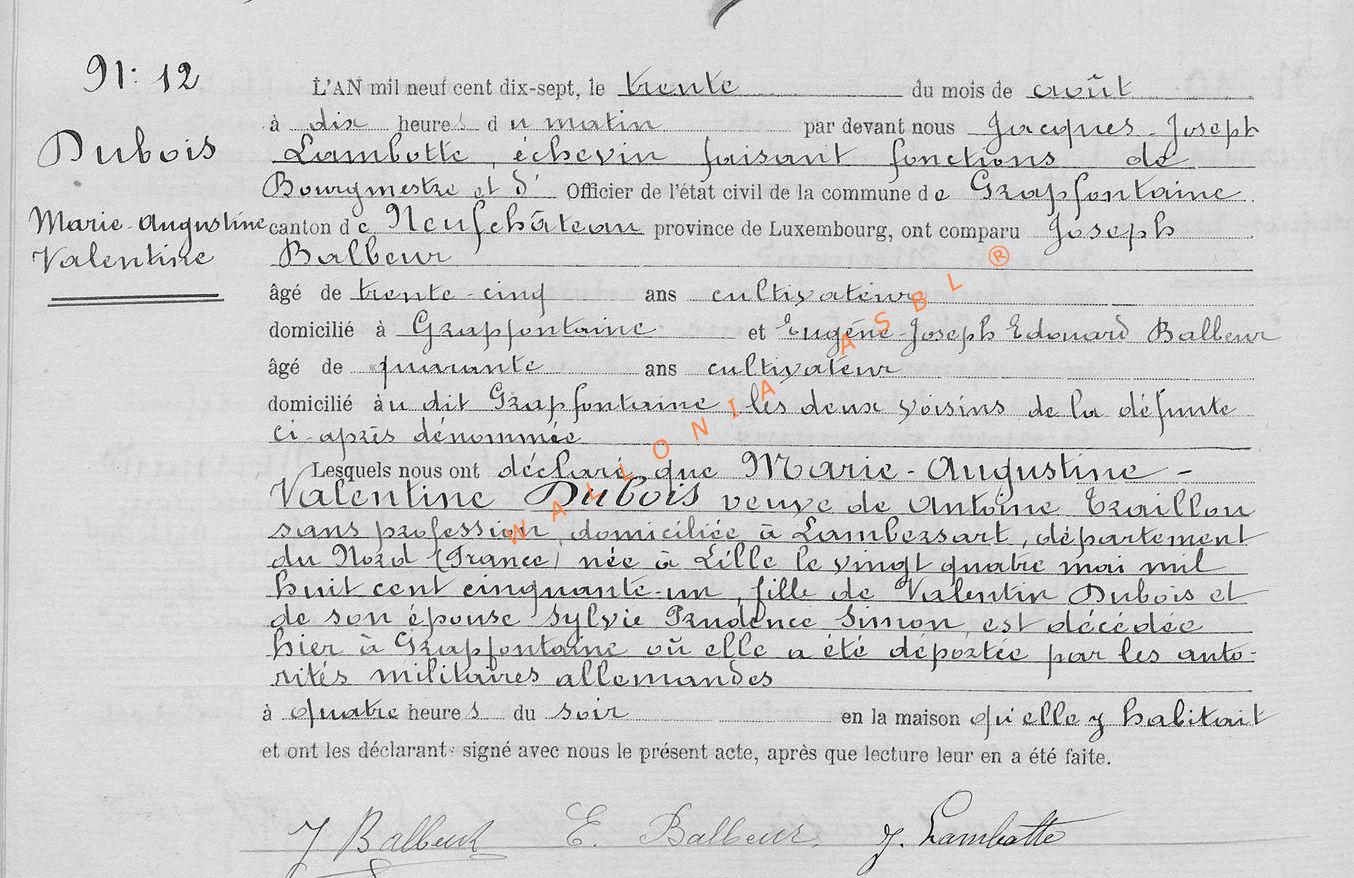 N: 12
Dubois
Marie-Augustine
Valentine
L'AN mil neuf cent dix-sept, le trente du mois de août
à dix heures du matin par devant nous Jacques-Joseph
Lambotte, échevin faisant fonctions de
Bourgmestre et d' Officier de l'état civil de la commune de Grapfontaine
canton de Neufchâteau province de Luxembourg, ont comparu Joseph
Balbeur
âgé de trente-cinq ans cultivateur
domicilié à Grapfontaine et Eugène-Joseph Edouard Balbeur
âgé de quarante ans cultivateur
domicilié àu dit Grapfontaine, les deux voisins de la défunte
ci-après dénommée
Lesquels nous ont déclaré que Marie-Augustine-
Valentine Dubois veuve de Antoine Traillon
sans profession, domiciliée à Lambersart, département
du Nord (France) née à Lille le vingt quatre mai mil
huit cent cinquante-un, fille de Valentin Dubois et
de son épouse Sylvie Prudence Simon, est décédée
hier à Grapfontaine où elle a été déportée par les auto-
rités militaires allemandes
à quatre heures du soir en la maison qu'elle y habitait
et ont les déclarant: signé avec nous le présent acte, après que lecture leur en a été faite.
J Balbeur E. Balbeur. J. Lambotte
WALLONIA ASBL ®